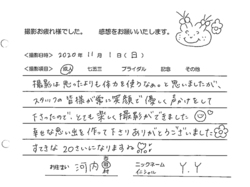 撮影お疲れ様でした。 感想をお願いいたします。
<撮影日時> 2020年11月1日(日)
<撮影項目> 成人 七五三 ブライダル 記念 その他
撮影は思ったよりも体力を使うなぁ。と思いましたが、
スタッフの皆様が常に笑顔で優しく声かけをして
下さったので、とても楽しく撮影ができました
幸せな思い出を作って下さりありがとうございました
すてきな20さいになりますね
お住まい 河内 ニックネーム Y.Y
イニシャル